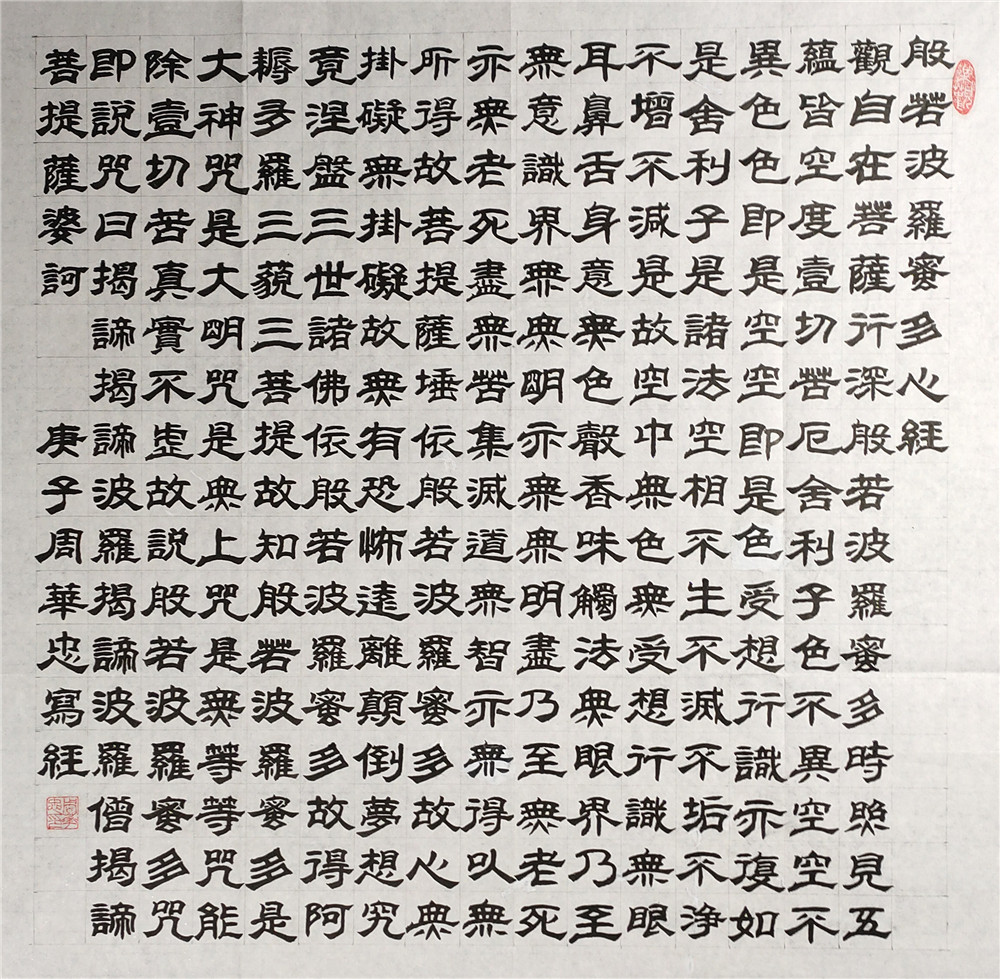 般若波羅蜜多心經
觀自在菩薩行深般若波羅蜜多時照見五
蘊皆空度壹切苦厄舍利子色不異空空不
異色色即是空空即是色受想行識亦復如
是舍利子是諸法空相不生不滅不垢不淨
不增不減是故空中無色無受想行識無眼
耳鼻舌身意無色聲香味觸法無眼界乃至
無意識界無無明亦無無明盡乃至無老死
亦無老死盡無苦集滅道無智亦無得以無
所得故菩提薩埵依般若波羅蜜多故心無
掛礙無掛礙故無有恐怖遠離顛倒夢想究
竟涅盤三世諸佛依般若波羅蜜多故得阿
耨多羅三藐三菩提故知般若波羅蜜多是
大神咒是大明咒是無上咒是無等等咒能
除壹切苦真實不虛故說般若波羅蜜多咒
即說咒曰揭諦揭諦波羅揭諦波羅僧揭諦
菩提薩婆訶 庚子周華忠寫經